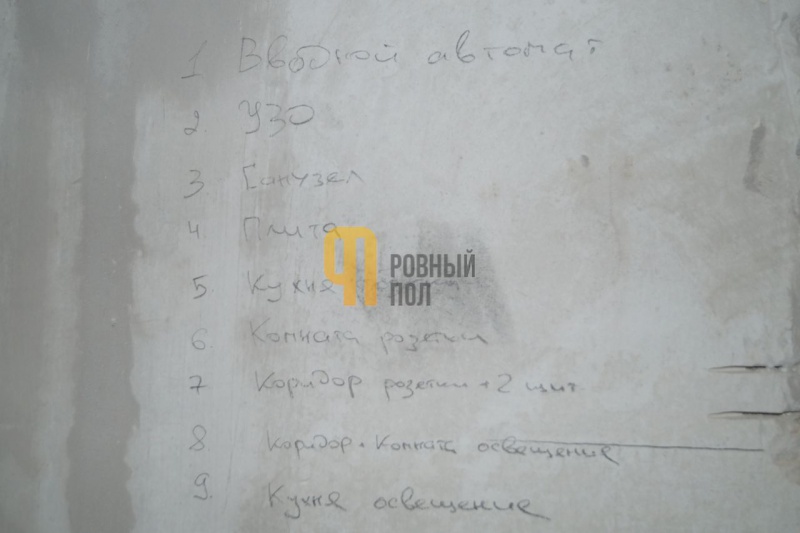 1 Вводной автомат
2. УЗО
3 Санузел
4 Плита
5. Кухня
РОВНЫЙ
ПОЛ
6. Комната розетки
7 Коридор розетки + 2 щит.
8 Коридор + Комната освещение
9. Кухня освещение